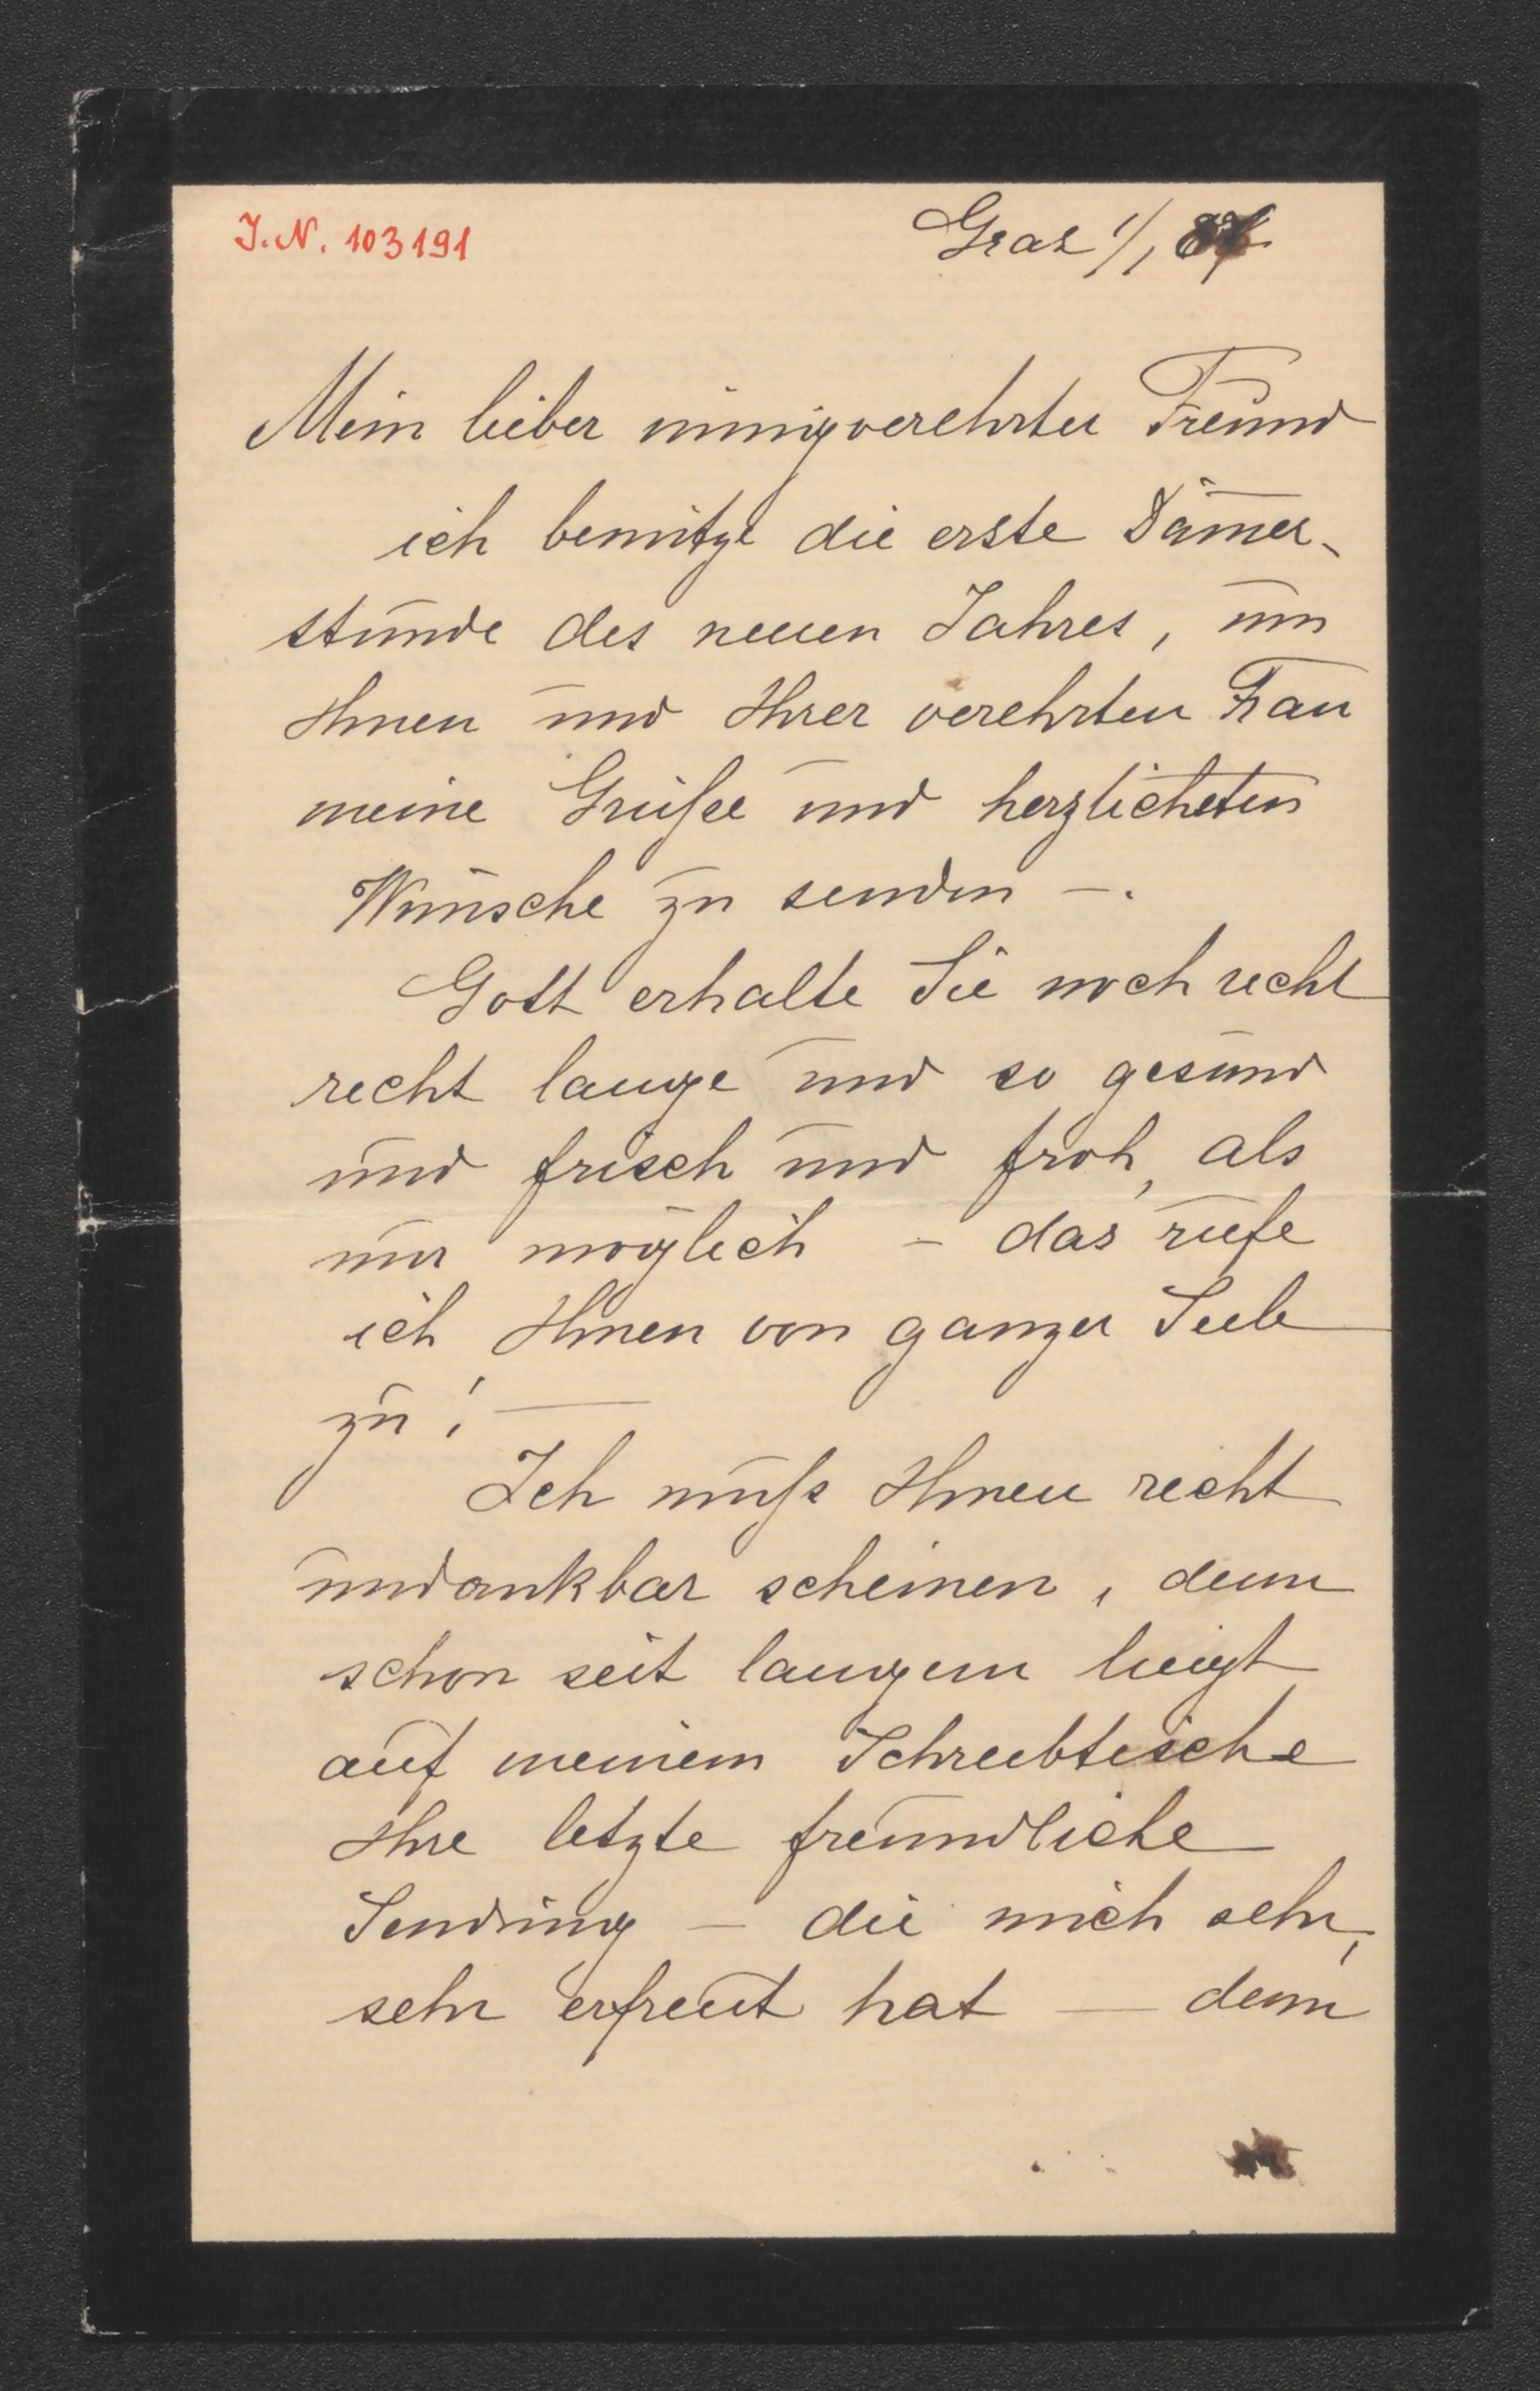 J. N. 103191
Graz 1/1 87
Mein lieber innigverehrter Freund
ich benütze die erste Däm̄er-
stunde des neuen Jahres, um
Ihnen und Ihrer verehrten Frau
meine Grüße und herzlichsten
Wünsche zu senden –.
Gott erhalte Sie noch recht
recht lange und so gesund
und frisch und froh, als
nur möglich – das rufe
ich Ihnen von ganzer Seele
zu! —
Ich muß Ihnen recht
undankbar scheinen, denn
schon seit langem liegt
auf meinem Schreibtische
Ihre letzte freundliche
Sendung – die mich sehr,
sehr erfreut hat — denn